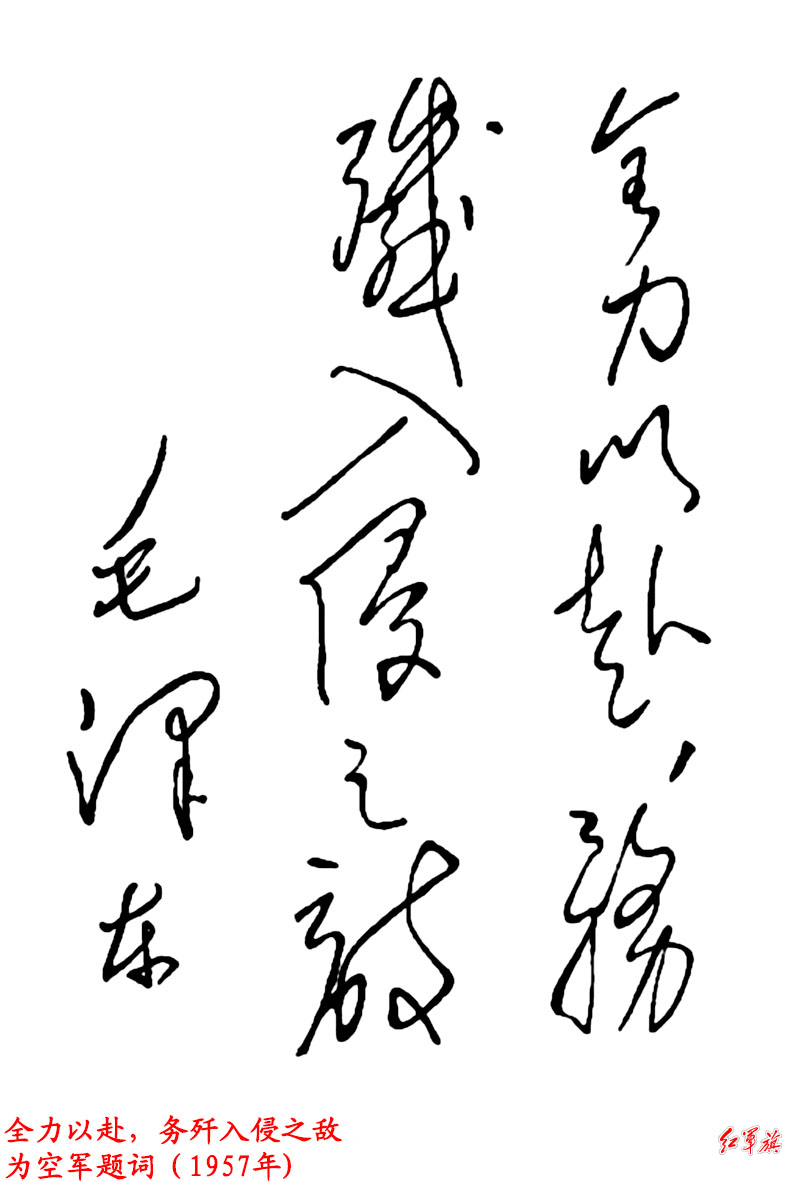 全力以赴,務
殲入侵之敵
毛泽东
全力以赴,务歼入侵之敌
为空军题词(1957年)
红军旗